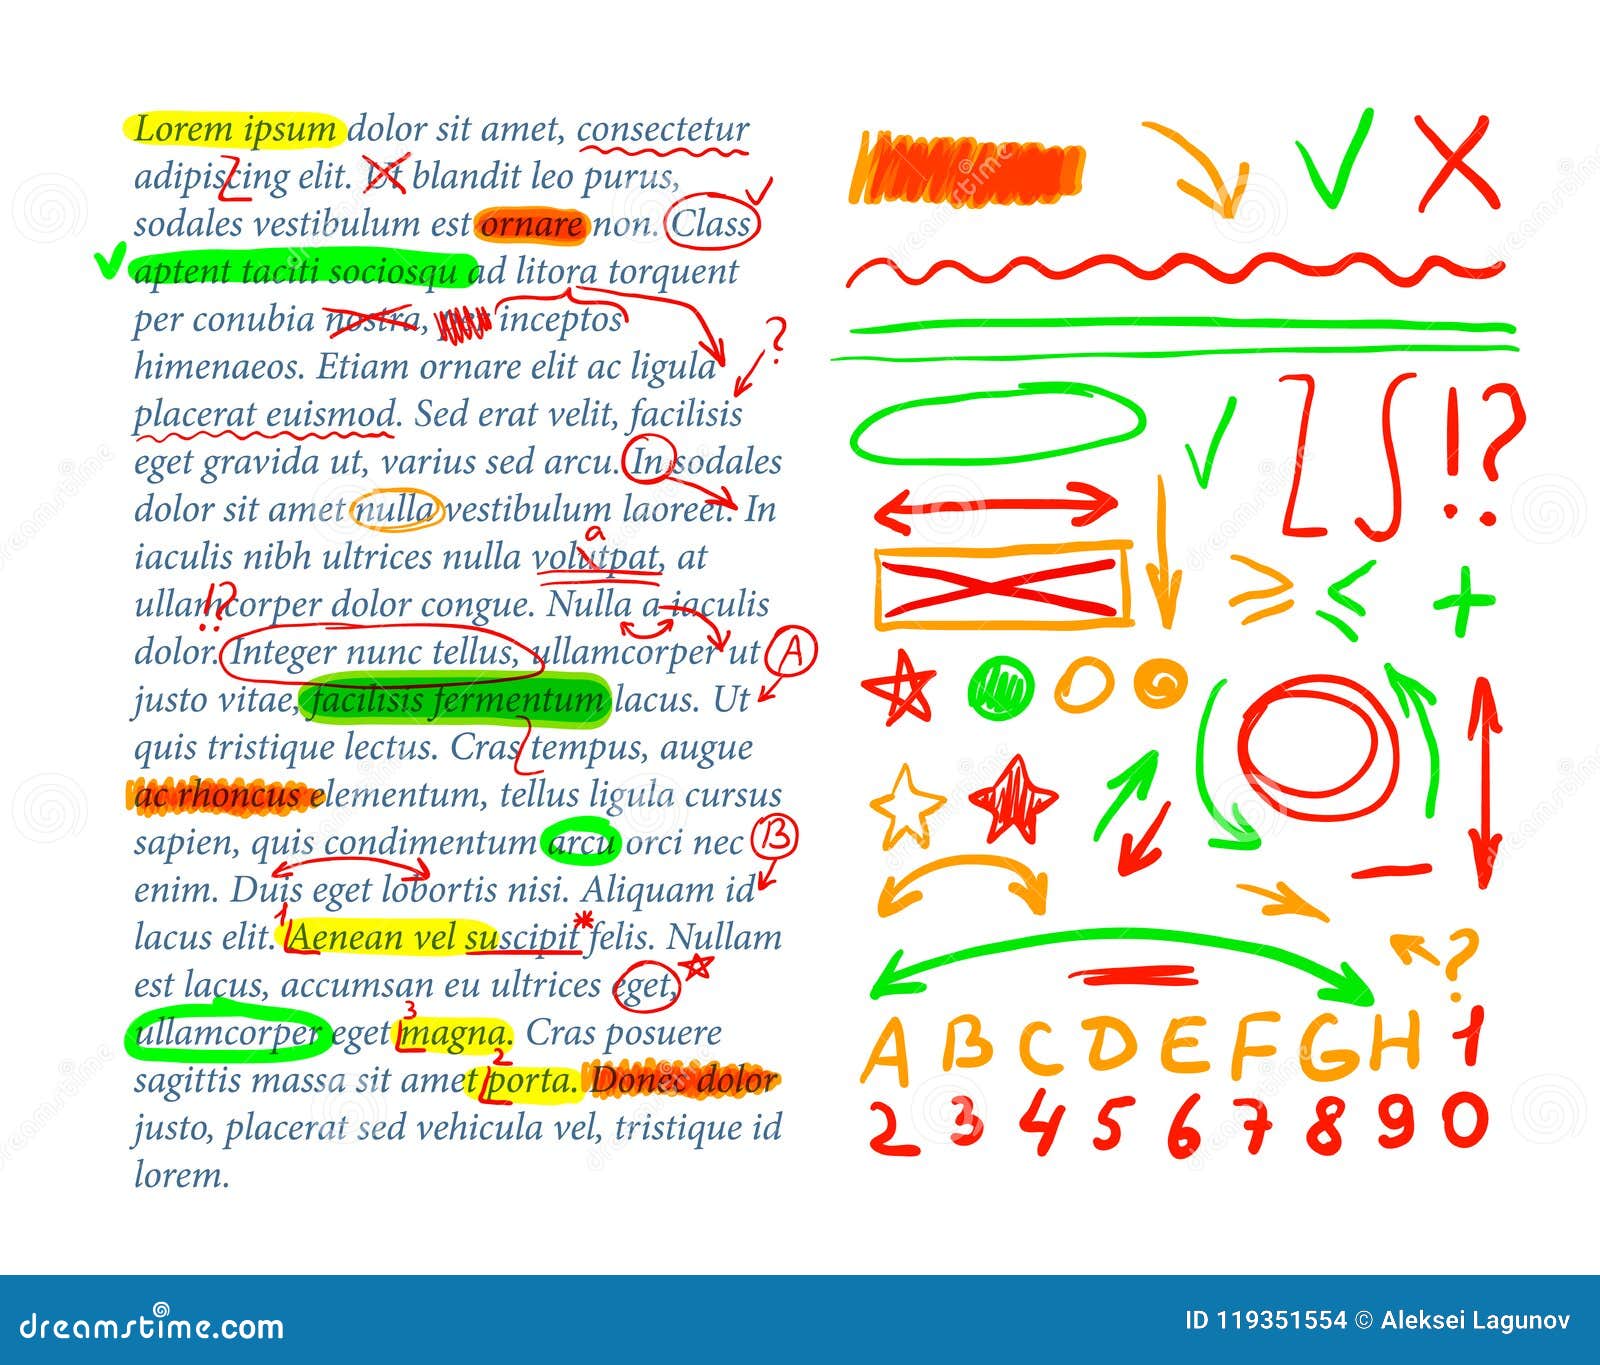 Lorem ipsum dolor sit amet, consectetur
adipiscing elit. Ut blandit leo purus,
sodales vestibulum est ornare non. Class
aptent taciti sociosqu ad litora torquent
per conubia nostra, per inceptos
himenaeos. Etiam ornare elit ac ligula
?
placerat euismod. Sed erat velit, facilisis
eget gravida ut, varius sed arcu. In sodales
dolor sit amet nulla vestibulum laoreet. In
a
iaculis nibh ultrices nulla volutpat, at
!?
ullamcorper dolor congue. Nulla a iaculis
dolor. Integer nunc tellus, ullamcorper ut A
justo vitae, facilisis fermentum lacus. Ut
quis tristique lectus. Cras tempus, augue
ac rhoncus elementum, tellus ligula cursus
sapien, quis condimentum arcu orci nec B
enim. Duis eget lobortis nisi. Aliquam id
1 *
lacus elit. Aenean vel suscipit felis. Nullam
est lacus, accumsan eu ultrices eget,
3
ullamcorper eget magna. Cras posuere
2
sagittis massa sit amet porta. Donec dolor
justo, placerat sed vehicula vel, tristique id
lorem.
!?
≥ ≤ +
?
A B C D E F G H 1
2 3 4 5 6 7 8 9 0
dreamstime.com
ID 119351554 © Aleksei Lagunov